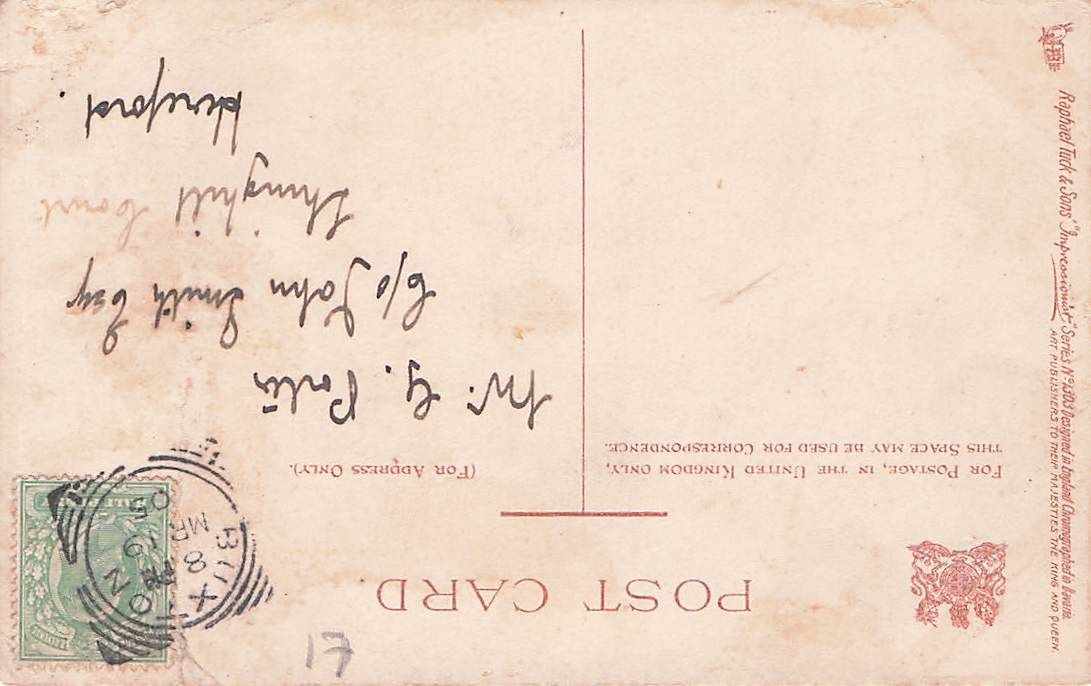 POST CARD
FOR POSTAGE, IN THE UNITED KINGDOM ONLY,
THIS SPACE MAY BE USED FOR CORRESPONDENCE.
(FOR ADDRESS ONLY).
Mr. G.
C/o John Smith Esq
Court
Hereford.
BUXTON
8 PM
MR 19
05
17
Raphael Tuck & Sons' "Impressionist" Series No 1303 Designed in England Chromographed in Bavaria
ART PUBLISHERS TO THEIR MAJESTIES THE KING AND QUEEN.